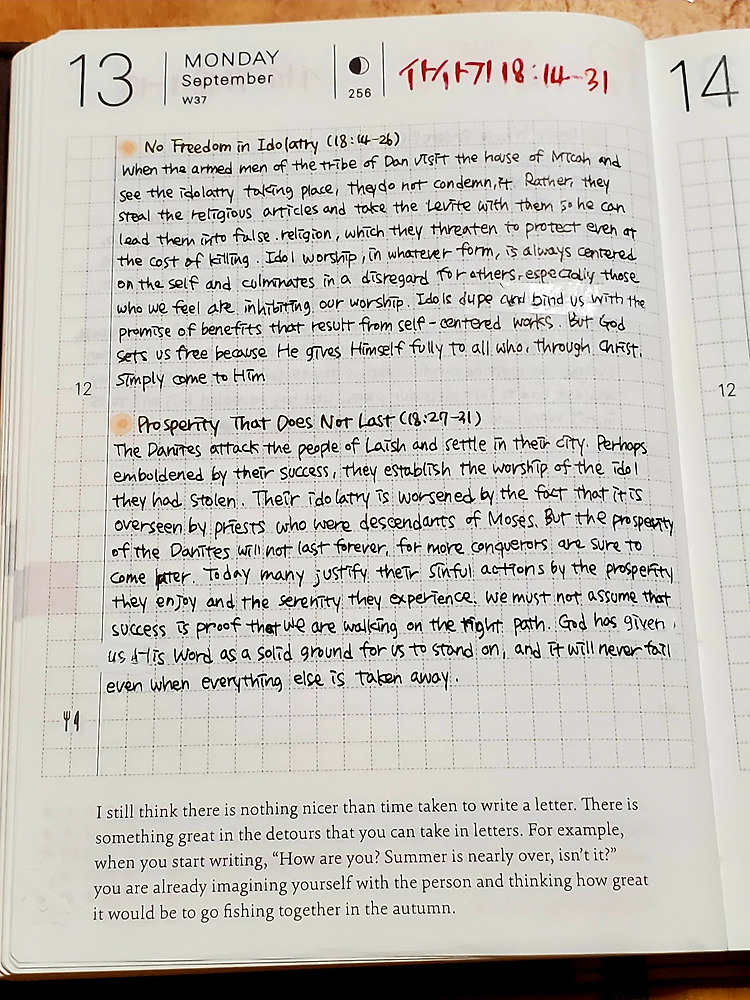 13
MONDAY
September
W37
256
사사기 18:14-31
14
No Freedom in Idolatry (18:14-26)
When the armed men of the tribe of Dan visit the house of Micah and
see the idolatry taking place, they do not condemn it. Rather, they
steal the religious articles and take the Levite with them so he can
lead them into false religion, which they threaten to protect even at
the cost of killing. Idol worship, in whatever form, is always centered
on the self and culminates in a disregard for others, especially those
who we feel are inhibiting our worship. Idols dupe and bind us with the
promise of benefits that result from self-centered works. But God
sets us free because He gives Himself fully to all who, through Christ,
simply come to Him
12
12
Prosperity That Does Not Last (18:27-31)
The Danites attack the people of Laish and settle in their city. Perhaps
emboldened by their success, they establish the worship of the idol
they had stolen. Their idolatry is worsened by the fact that it is
overseen by priests who were descendants of Moses. But the prosperity
of the Danites will not last forever, for more conquerors are sure to
come later. Today many justify their sinful actions by the prosperity
they enjoy and the serenity they experience. We must not assume that
success is proof that we are walking on the right path. God has given
us His Word as a solid ground for us to stand on, and it will never fail
even when everything else is taken away.
I still think there is nothing nicer than time taken to write a letter. There is
something great in the detours that you can take in letters. For example,
when you start writing, “How are you? Summer is nearly over, isn’t it?”
you are already imagining yourself with the person and thinking how great
it would be to go fishing together in the autumn.